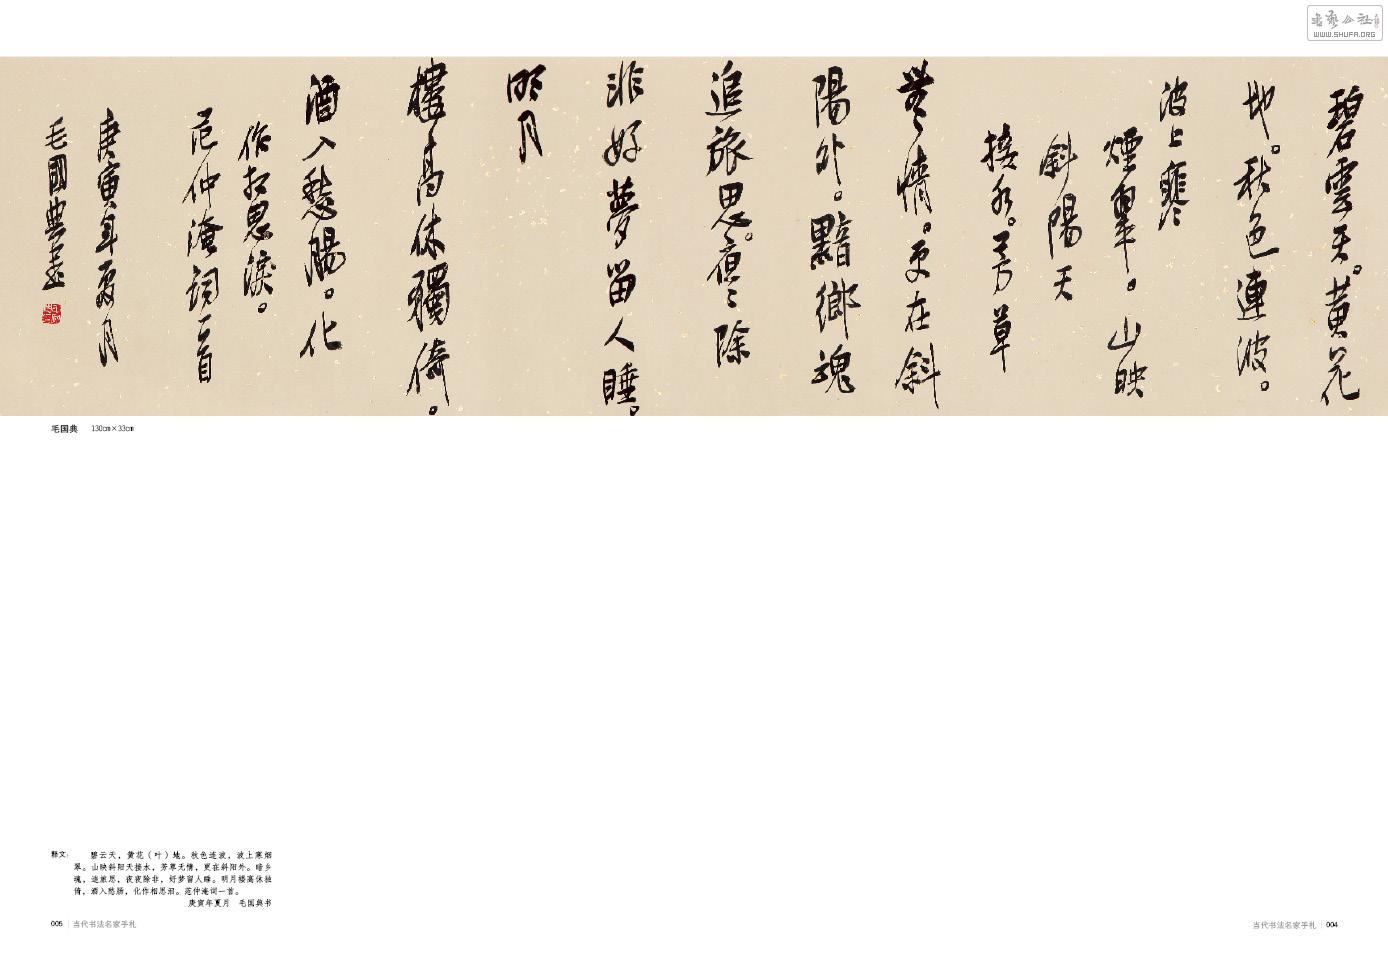 碧雲天。黃花
地。秋色連波。
波上寒
煙翠。山映
斜陽天
接水。芳草
無情。更在斜
陽外。黯鄉魂
追旅思。夜〻除
非好夢留人睡。
明月
樓高休獨倚。
酒入愁腸。化
作相思淚。
范仲淹詞一首
庚寅年夏月
毛國典書
毛国典 130cm×33cm
释文: 碧云天，黄花（叶）地。秋色连波，波上寒烟
翠。山映斜阳天接水，芳草无情，更在斜阳外。暗乡
魂，追旅思，夜夜除非，好梦留人睡。明月楼高休独
倚，酒入愁肠，化作相思泪。范仲淹词一首。
庚寅年夏月 毛国典书
005 当代书法名家手札
当代书法名家手札 004
WWW.SHUFA.ORG